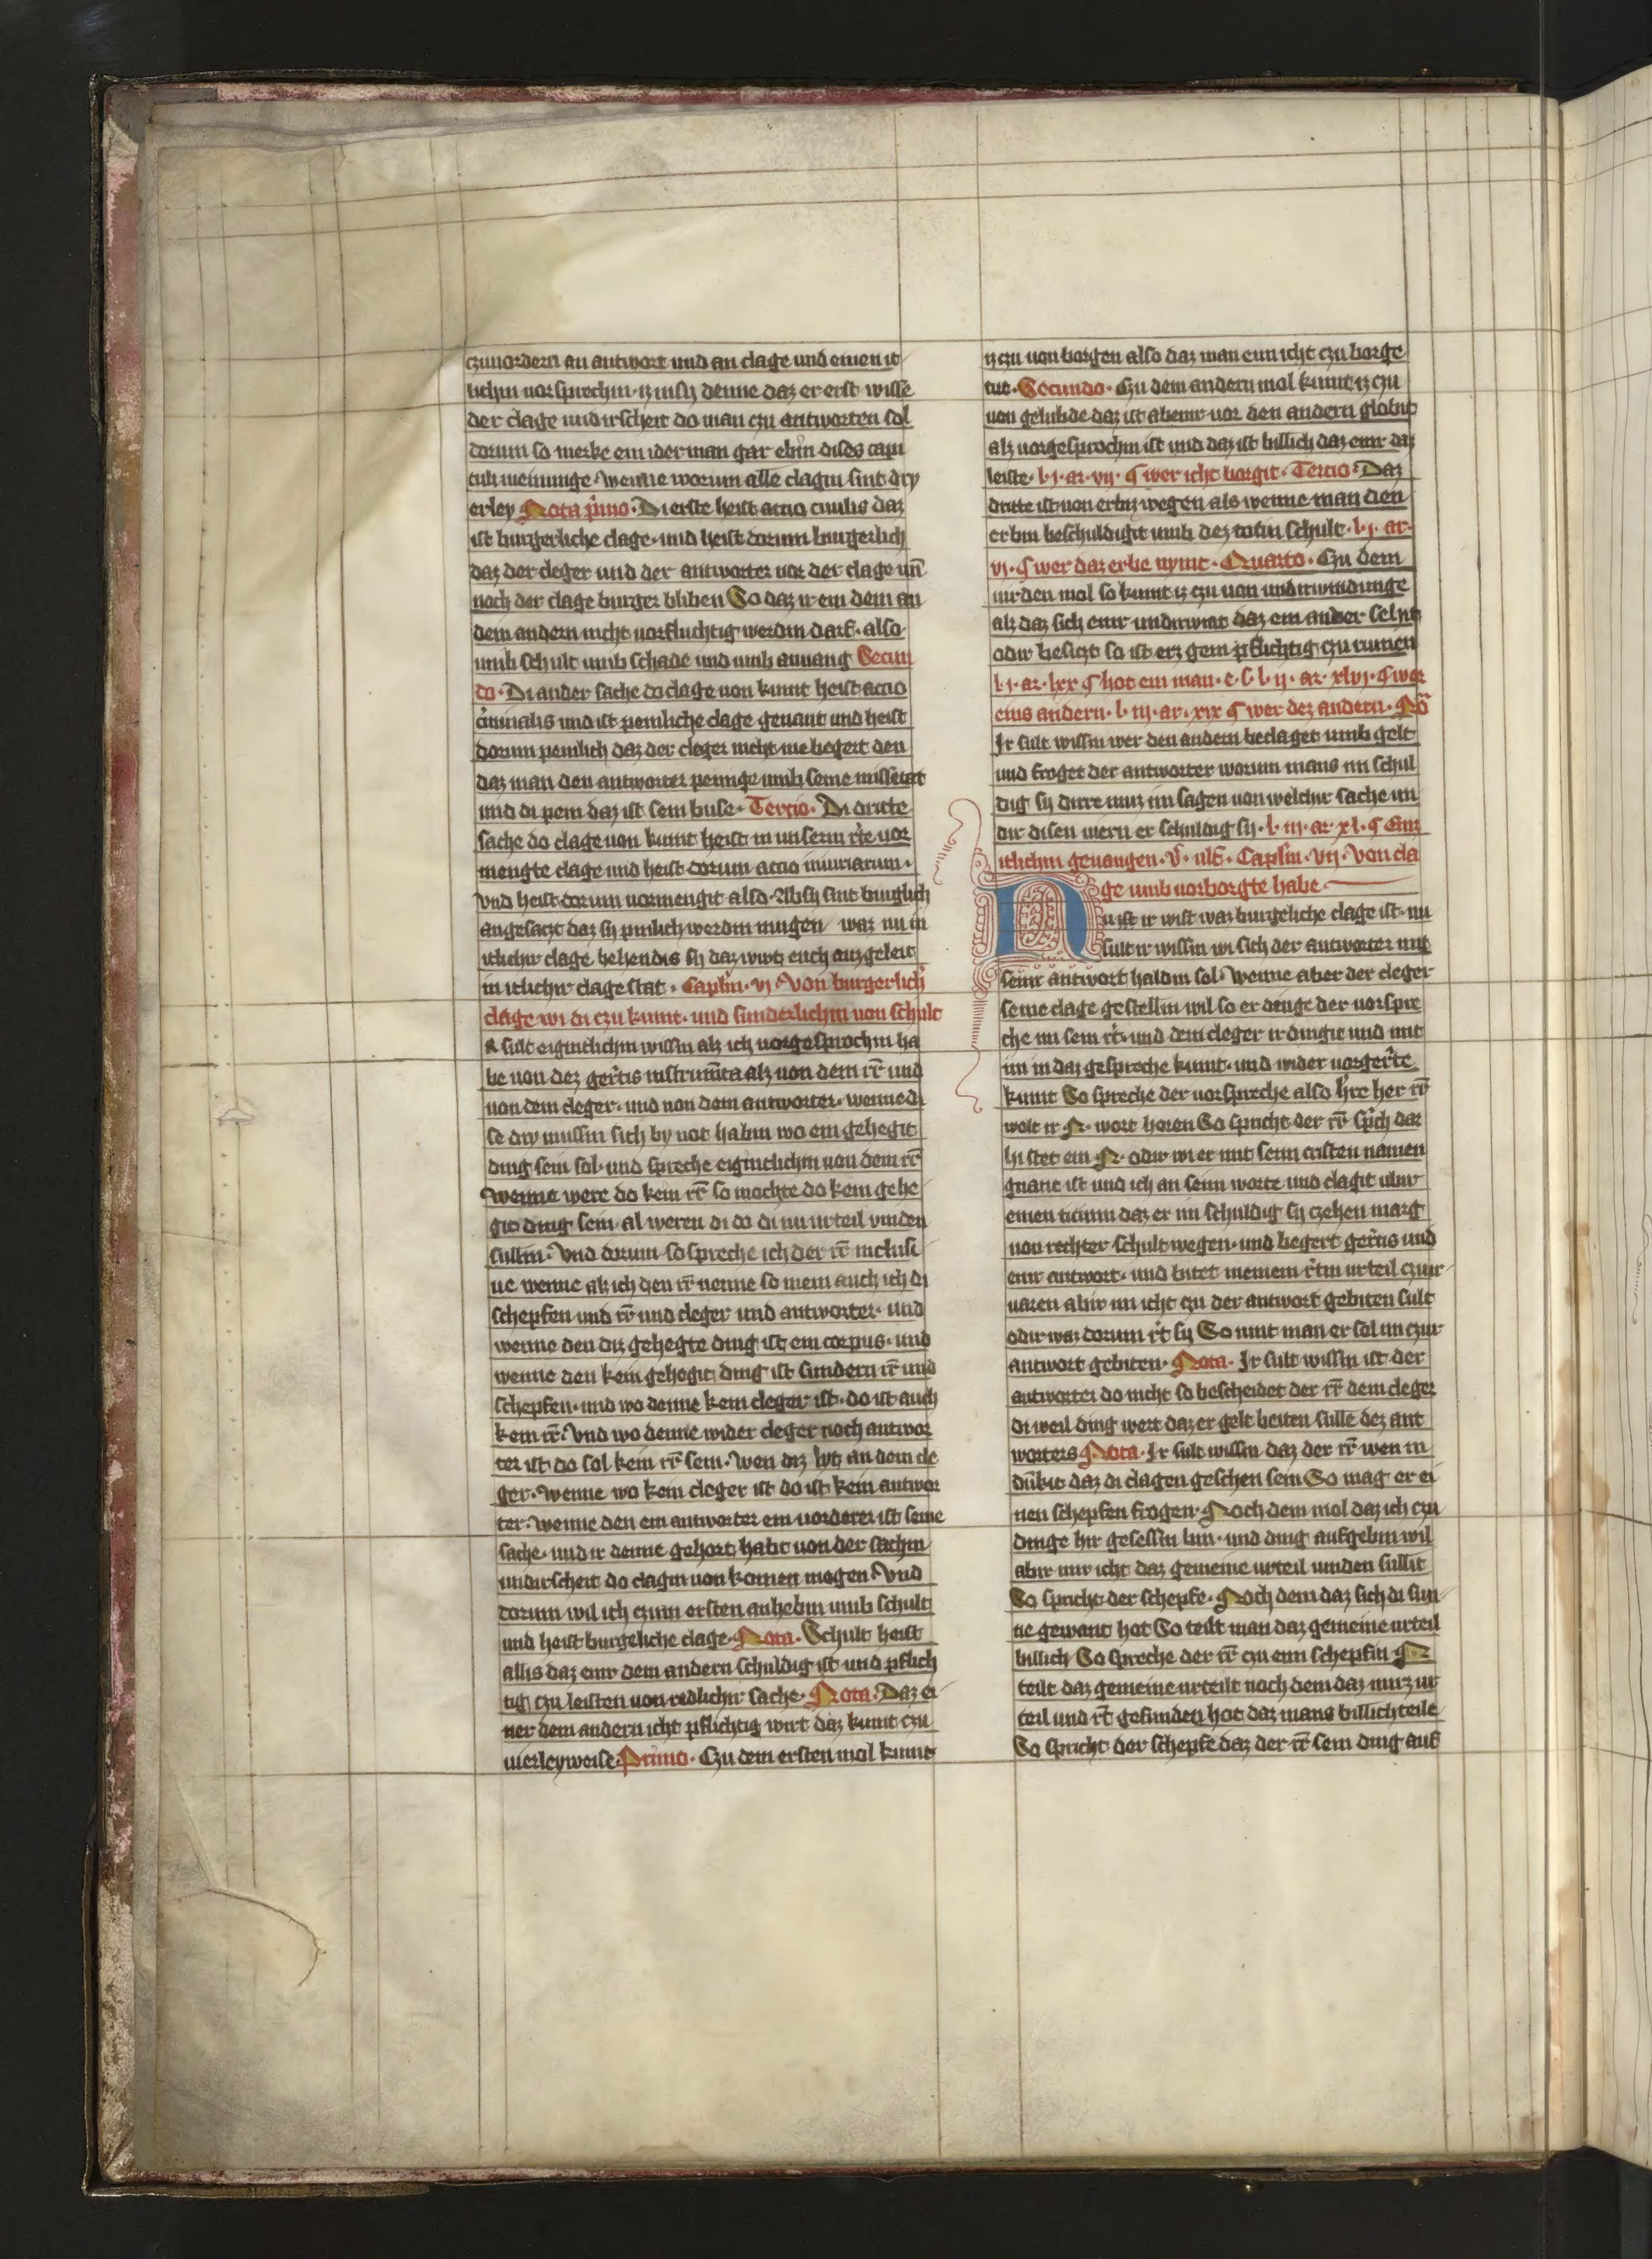 czuuordern an antwort und an clage und einen it
lichin uorsprechin iz insy denne daz er erst wisse
der clage undirscheit do man czu antworten sol
dorum so merke ein iderman gar ebin dises capi
tuli meinunge Wenne worum alle clagin sint dry
erley Nota primo Di erste heist actio ciuilis daz
ist burgerliche clage und heist dorum burgerlich
daz der cleger und der antworter uor der clage un̄
noch der clage burger bliben So daz ir ein dem an
dem andern nicht uorfluchtig werdin darf also
umb schult umb schade und umb anuang Secun
do Di ander sache do clage uon kumt heist actio
criminalis und ist peinliche clage genant und heist
dorum peinlich daz der cleger nicht me begert den
daz man den antworter peinge umb seine missetat
und di pein daz ist sein buse Tercio Di dritte
sache do clage uon kumt heist in unserm rechte uor
mengte clage und heist dorum actio iniuriarum
Vnd heist dorum uormengit also Ab sy sint burglich
angesaczt daz sy pinlich werdin mugen waz nu in
itlichir clage behendis sy daz wirt euch auzgeleit
in itlichir clage stat Caplm vj Von burgerlichir
clage wi di czu kumt und sunderlichin uon schult
R sult eigintlichin wissin alz ich uorgesprochin ha
be uon dez gerichtis instrumenta alz uon dem rr̄ und
uon dem cleger und uon dem antworter wenne di
se dry mussin sich by not habin wo ein gehegit
ding sein sol und spreche eigintlichin uon dem rr̄
Wenne were do kein rr̄ so mochte do kein gehe
git ding sein al weren di do di nu urteil vinden
sullin Vnd dorum so spreche ich der rr̄ inclusi
ue wenne alz ich den rr̄ nenne so mein auch ich di
schepfen und rr̄ und cleger und antworter und
wenne den diz gehegte ding ist ein corpus und
wenne den kein gehegit ding ist sundern rr̄ und
schepfen und wo denne kein cleger ist do ist auch
kein rr̄ Vnd wo denne wider cleger noch antwor
ter ist do sol kein rr̄ sein Wen diz lyt an dem cle
ger Wenne wo kein cleger ist do ist kein antwor
ter Wenne den ein antworter ein uorderer ist seine
sache und ir denne gehort habt uon der sachin
undirscheit do clagin uon komen mogen Vnd
dorum wil ich czum ersten anhebin umb schult
und heist burgeliche clage Nota Schult heist
allis daz einr dem andern schuldig ist und pflich
tig czu leisten uon redlichir sache Nota Daz ei
ner dem andern icht pflichtig wirt daz kumt czu
uierleyweise Primo Czu dem ersten mol kumt
iz czu uon borgen also daz man eim icht czu borge
tut Secundo Czu dem andern mol kumt iz czu
uon gelubde daz ist ab einr uor den andern globit
alz uorgesprochin ist und daz ist billich daz einr daz
leiste l j ar vij ¶ wer icht borgit Tercio Daz
dritte ist uon erbiz wegen als wenne man den
erbin beschuldigit umb dez totin schult l j ar
vj ¶ wer daz erbe nymt Quarto Czu dem
uirden mol so kumt iz czu uon undirwindunge
alz daz sich einr undirwint daz ein ander selns
odir besiczt so ist erz gein pflichtig czu rumen
l j ar lxx ¶ hot ein man e l l ij ar xlvj ¶ wer
eins andern l iij ar xix ¶ wer dez andern No
Ir sult wissin wer den andern beclaget umb gelt
und froget der antworter worum mans im schul
dig sy dirre muz im sagen uon welchir sache im
dir disen wern er schuldig sy l iij ar xl ¶ Eim
itlichin genangen V ult Caplm vij Von cla
ge umb uorborgte habe
Nu ist ir wist waz burgeliche clage ist nu
sult ir wissin wi sich der antworter mit
seinr antwort haldin sol Wenne aber der cleger
seine clage gestellin wil so er dinge der uorspre
che im sein recht und dem cleger ir dingit und mit
im in daz gespreche kumt und wider uorgerichte
kumt So spreche der uorspreche also hre her rr̄
wolt ir N wort horen So spricht der rr̄ sprich dar
hi stet ein N odir wi er mit seim cristen namen
gnant ist und ich an seim worte und clagit ubir
einen ticium daz er im schuldig sy czehen marg
uon rechter schult wegen und begert gerichtis und
einr antwort und bitet meinem rechtin urteil czuir
uaren ab ir im icht czu der antwort gebiten sult
odir waz dorum recht sy So uint man er sol im czur
antwort gebiten Nota Ir sult wissin ist der
antworter do nicht so bescheidet der rr̄ dem cleger
di weil ding wert daz er gelt beiten sulle dez ant
worters Nota Ir sult wissin daz der rr̄ wen in
dunkit daz di clagen geschen sein So mag er ei
nen schepfen frogen Noch dem mol daz ich czu
dinge hir gesessin bin und ding aufgebin wil
ab ir mir icht daz gemeine urteil uinden sullit
So spricht der schepfe Noch dem daz sich di sun
ne gewant hot So teilt man daz gemeine urteil
billich So spreche der rr̄ czu eim schepfin N
teilt daz gemeine urteil noch dem daz mirz ur
teil und recht gefunden hot daz mans billich teile
So spricht der schepfe daz der rr̄ sein ding auf